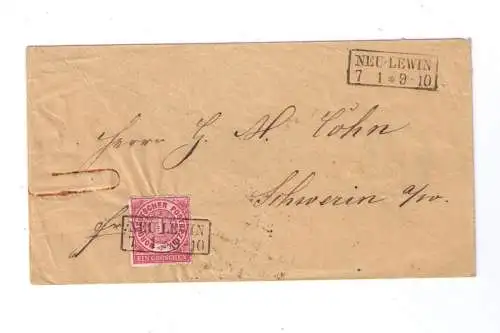 NEU-LEWIN
7 1 * 9-10
Herrn H. M. Cohn
Schwerin a/w.
fr.
NORDDEUTSCHER POSTBEZIRK
NEU-LEWIN
7 10
EIN GROSCHEN